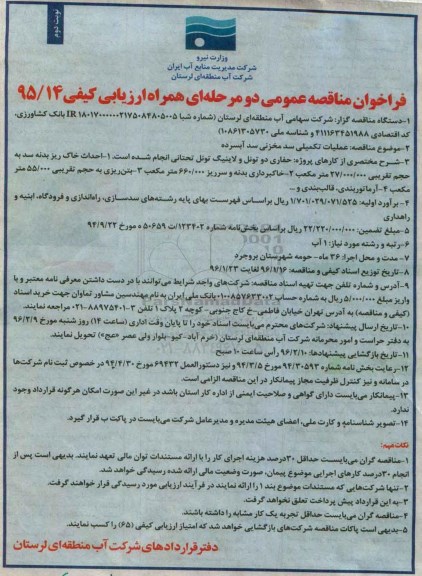 نوبت دوم
وزارت نیرو
شرکت مدیریت منابع آب ایران
شرکت آب منطقه‌ای لرستان
فراخوان مناقصه عمومی دو مرحله‌ای همراه ارزیابی کیفی ۹۵/۱۴
۱-دستگاه مناقصه گزار: شرکت سهامی آب منطقه‌ای لرستان (شماره شبا IR ۱۸۰۱۷۰۰۰۰۰۰۲۱۷۵۰۸۴۸۰۵۰۰۵ بانک کشاورزی،
کد اقتصادی ۴۱۱۱۶۳۴۵۱۹۸۸ و شناسه ملی ۱۰۸۶۱۳۰۵۷۳۰)
۲-موضوع مناقصه: عملیات تکمیلی سد مخزنی سد آبسرده
۳-شرح مختصری از کارهای پروژه: حفاری دو تونل و لاینینگ تونل تحتانی انجام شده است. ۱-احداث خاک ریز بدنه سد به
حجم تقریبی ۲۷/۰۰۰/۰۰۰ متر مکعب ۲-خاکبرداری بدنه و سرریز ۶۶۰/۰۰۰ متر مکعب ۳-بتن‌ریزی به حجم تقریبی ۵۵/۰۰۰ متر
مکعب ۴-آرماتوربندی، قالب‌بندی و...
۴-برآورد اولیه: ۱/۷۰۱/۰۲۹/۰۷۱/۵۲۵ ریال براساس فهرست بهای پایه رشته‌های سدسازی، راه‌اندازی و فرودگاه، ابنیه و
راهداری
۵-مبلغ تضمین: ۲۲/۲۲۰/۰۰۰/۰۰۰ ریال براساس بخش‌نامه شماره ۱۲۳۴۰۲/ت ۵۰۶۵۹ ه مورخ ۹۴/۹/۲۲
۶-رتبه و رشته مورد نیاز: ۱ آب
۷-مدت و محل اجرا: ۳۶ ماه- حومه شهرستان بروجرد
۸-تاریخ توزیع اسناد کیفی و مناقصه: ۹۶/۱/۱۶ لغایت ۹۶/۱/۲۳
۹-آدرس و شماره تلفن جهت تهیه اسناد مناقصه: شرکت‌های واجد شرایط می‌توانند با در دست داشتن معرفی نامه معتبر و با
واریز مبلغ ۵/۰۰۰/۰۰۰ ریال به شماره حساب ۰۱۰۰۸۵۷۶۳۳۰۰۲ بانک ملی ایران به نام مهندسین مشاور تماوان جهت خرید اسناد
(کیفی و مناقصه) به آدرس تهران خیابان فاطمی-خ کاج جنوبی- کوچه ۲ پلاک ۱ تلفن ۳-۸۸۹۷۵۴۰۱-۰۲۱ مراجعه نمایند.
۱۰-تاریخ ارسال پیشنهاد: شرکت‌های محترم می‌بایست اسناد خود را تا پایان وقت اداری (ساعت ۱۴) روز شنبه مورخ ۹۶/۲/۹
به دفتر حراست و امور محرمانه شرکت آب منطقه‌ای لرستان (خرم آباد-کیو-بلوار ولی عصر «عج») تحویل نمایند.
۱۱-تاریخ بازگشایی پیشنهادها: ۹۶/۲/۱۰ رأس ساعت ۱۰ صبح
۱۲-رعایت بخش نامه شماره ۹۴/۲۰۵۹۳ مورخ ۹۴/۳/۵ و نیز دستورالعمل ۶۹۴۳۲ مورخ ۹۴/۴/۳۰ در خصوص ثبت نام شرکت‌ها
در سامانه و نیز کنترل ظرفیت مجاز پیمانکار در این مناقصه الزامی است.
۱۳-پیمانکار می‌بایست دارای گواهی و صلاحیت ایمنی از اداره کار استان باشد در غیر این صورت امکان هرگونه قرارداد وجود
ندارد.
۱۴-تصویر شناسنامه و کارت ملی، اعضای هیئت مدیره و مدیرعامل شرکت می‌بایست در پاکت ب قرار گیرد.
نکات مهم:
۱-مناقصه گران می‌بایست حداقل ۳۰درصد هزینه اجرای کار را با ارائه مستندات توان مالی تعهد نمایند. بدیهی است پس از
انجام ۳۰درصد کارهای اجرایی موضوع پیمان، صورت وضعیت مالی ارائه شده رسیدگی خواهد شد.
۲-تنها شرکت‌هایی که مستندات موضوع بند ۱ را ارائه نمایند در فرآیند ارزیابی مورد رسیدگی قرار خواهند گرفت.
۳-به این قرارداد پیش پرداخت تعلق نخواهد گرفت.
۴-مناقصه گران می‌بایست حداقل تجربه یک کار مشابه را داشته باشند.
۵-بدیهی است پاکات مناقصه شرکت‌های بازگشایی خواهد شد که امتیاز ارزیابی کیفی (۶۵) را کسب نمایند.
دفتر قراردادهای شرکت آب منطقه‌ای لرستان